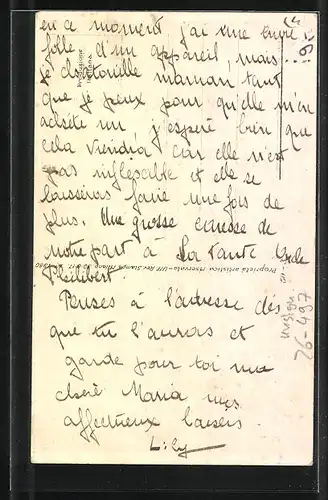 en ce moment, j'ai une envie
folle d'un appareil, mais
je chatouille maman tant
que je peux pour qu'elle m'en
achète un, j'espère bien que
cela viendra car elle n'est
pas inflexible et elle se
laissera faire une fois de
plus. Une grosse caresse de
notre part à la tante
Philibert.
Penses à l'adresse dès
que tu l'auras et
garde pour toi ma
chère Maria mes
affectueux baisers
Lily
Proprietà artistica riservata
26-497